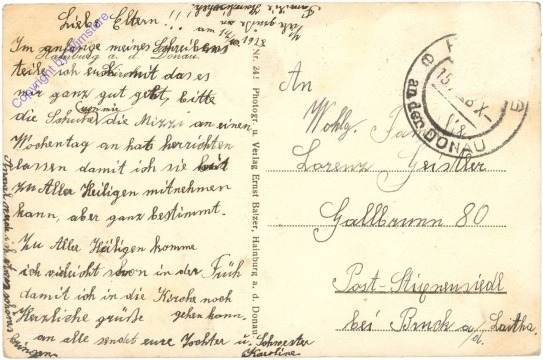 Liebe Eltern!!!
am 15/10 1928
Im anfange meines Schreibens
Hainburg a. d. Donau.
teile ich euch mit das es
mir ganz gut geht, bitte
die Schuhe die Mizzi an einen
Wochentag an hab herrichten
lassen damit ich sie
zu Aller Heiligen mitnehmen
kann, aber ganz bestimmt.
Zu Aller Heiligen komme
ich vieleicht schon in der Früh
damit ich in die Kirche noch
gehen kann.
Herzliche grüße
an alle sendet eure Tochter u. Schwester
Karoline
Nr. 241 Photogr. u. Verlag Ernst Balzer, Hainburg a. d. Donau
an der DONAU
An
Wohlg. Fam
Lorenz Geistler
Gallbrunn 80
Post-Stixneusiedl
bei Bruck a/d. Laitha
Copyright by Filmstore